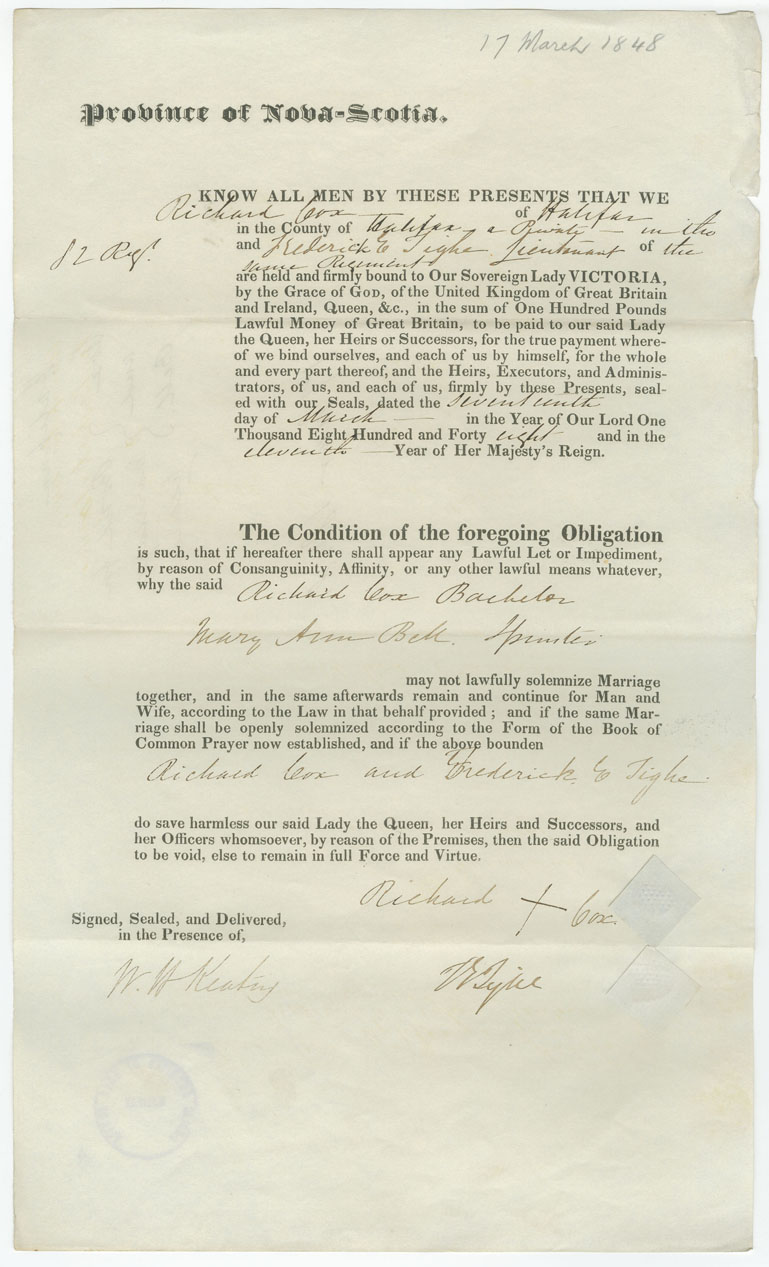 17 March 1848
Province of Nova-Scotia.
KNOW ALL MEN BY THESE PRESENTS THAT WE
Richard Cox of Halifax
in the County of Halifax a Private in the
82 Regt.
and Frederick E Tighe Lieutenant of the
same Regiment
are held and firmly bound to Our Sovereign Lady VICTORIA,
by the Grace of GOD, of the United Kingdom of Great Britain
and Ireland, Queen, &c., in the sum of One Hundred Pounds
Lawful Money of Great Britain, to be paid to our said Lady
the Queen, her Heirs or Successors, for the true payment where-
of we bind ourselves, and each of us by himself, for the whole
and every part thereof, and the Heirs, Executors, and Adminis-
trators, of us, and each of us, firmly by these Presents, seal-
ed with our Seals, dated the Seventeenth
day of March in the Year of Our Lord One
Thousand Eight Hundred and Forty eight and in the
eleventh Year of Her Majesty's Reign.
The Condition of the foregoing Obligation
is such, that if hereafter there shall appear any Lawful Let or Impediment,
by reason of Consanguinity, Affinity, or any other lawful means whatever,
why the said Richard Cox Bachelor
Mary Ann Bell. Spinster
may not lawfully solemnize Marriage
together, and in the same afterwards remain and continue for Man and
Wife, according to the Law in that behalf provided ; and if the same Mar-
riage shall be openly solemnized according to the Form of the Book of
Common Prayer now established, and if the above bounden
Richard Cox and Frederick E Tighe.
do save harmless our said Lady the Queen, her Heirs and Successors, and
her Officers whomsoever, by reason of the Premises, then the said Obligation
to be void, else to remain in full Force and Virtue.
Richard + Cox
Signed, Sealed, and Delivered,
in the Presence of,
W. H Keating
Tighe